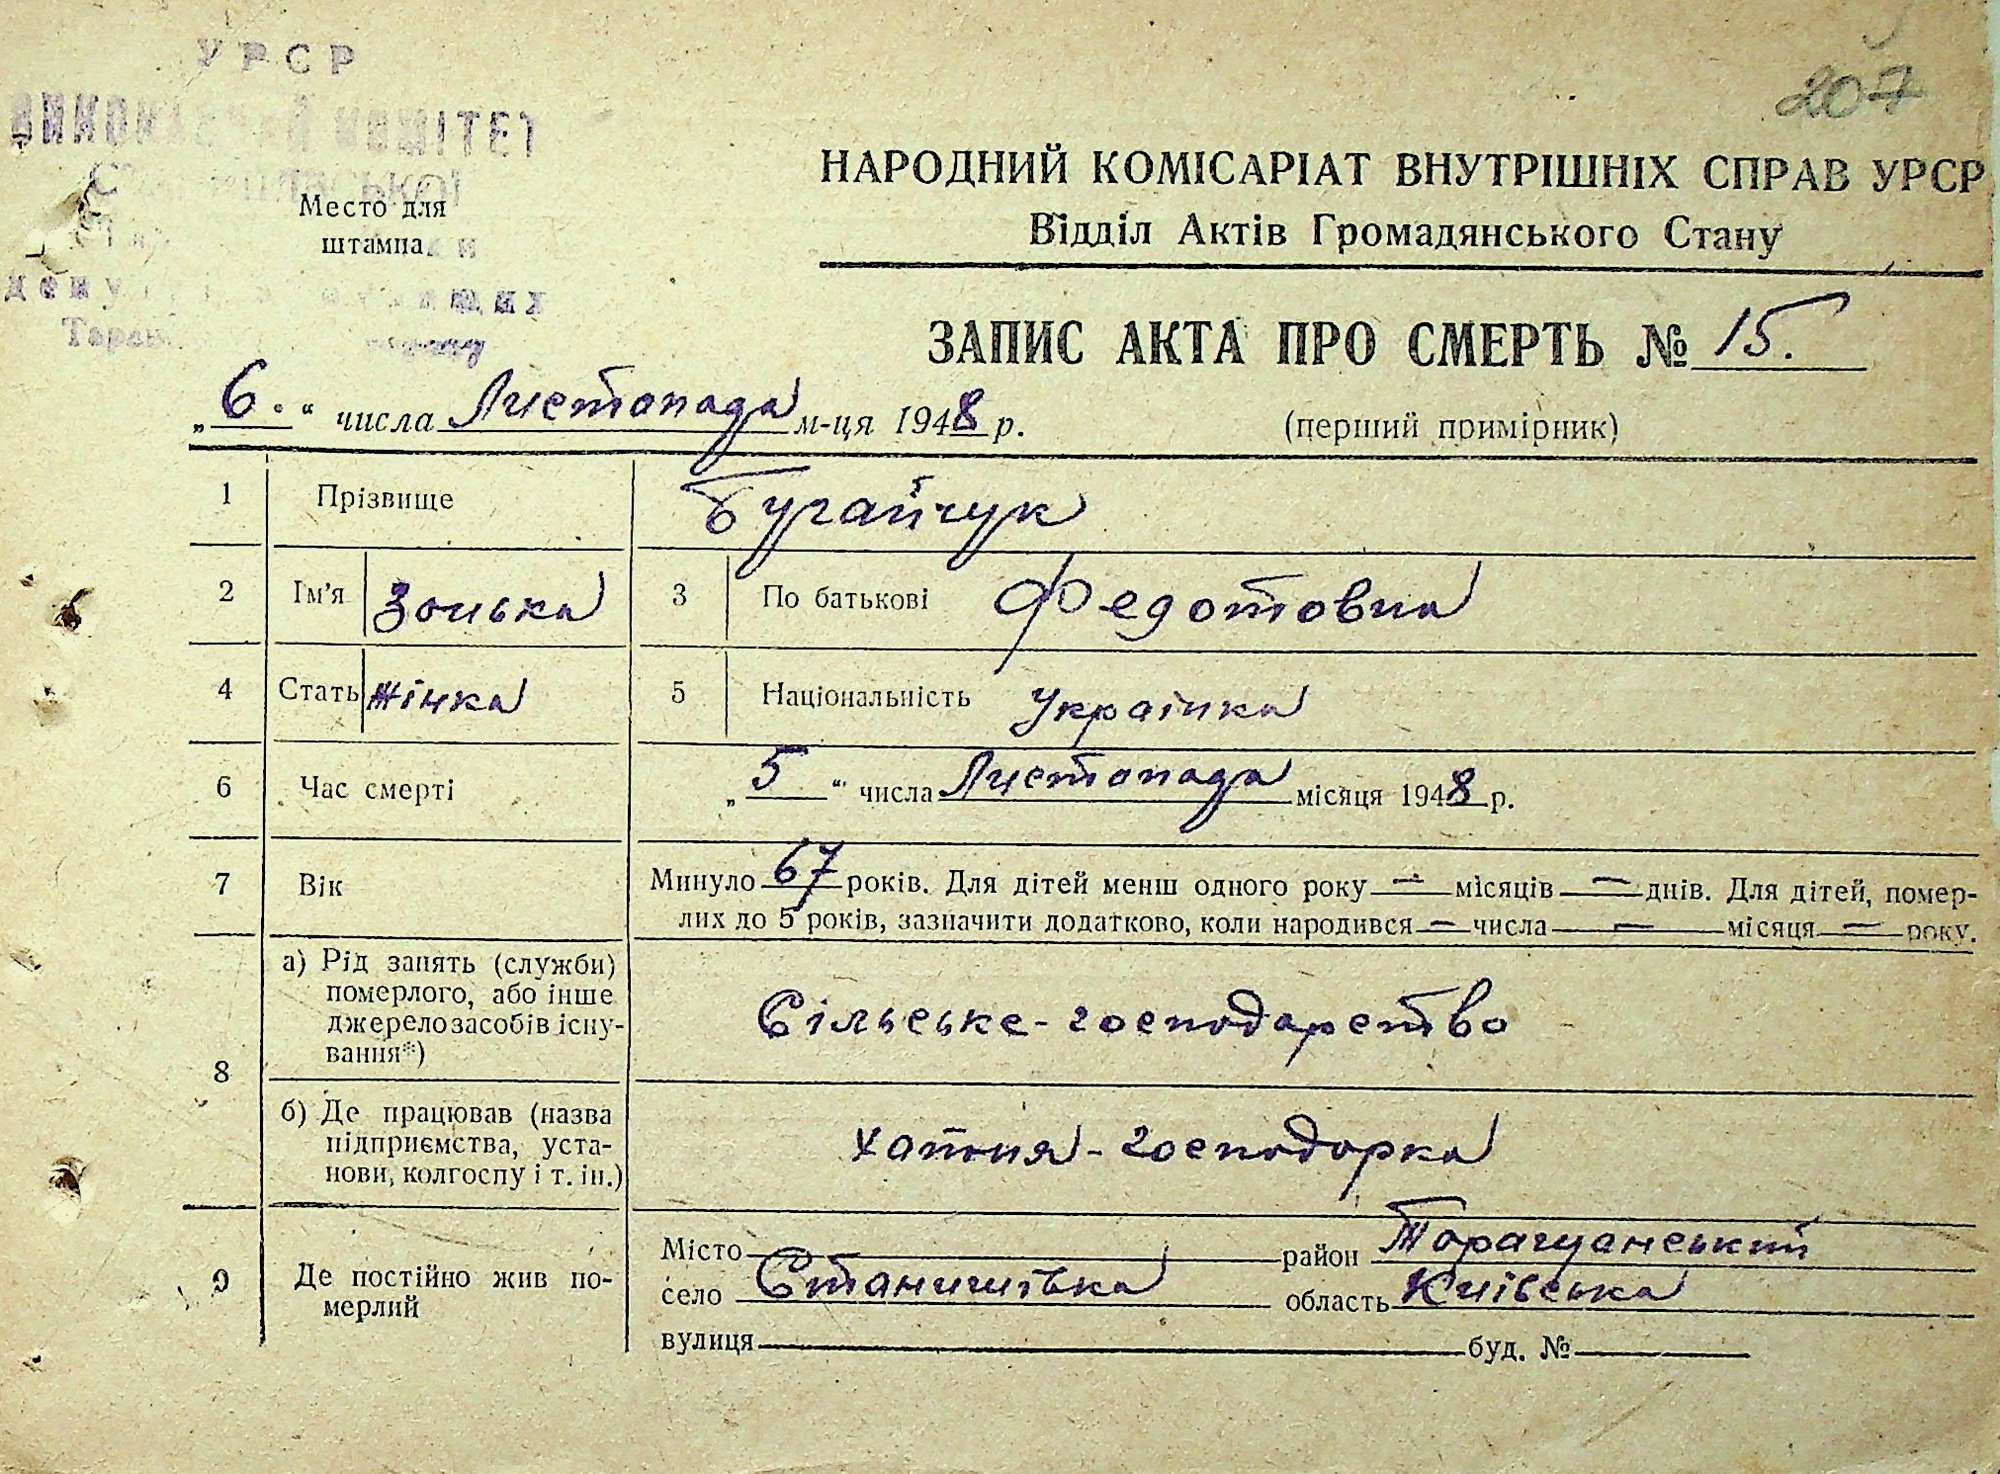 УРСР
ВИКОНАВЧИЙ КОМІТЕТ
Место для
штампа
207
НАРОДНИЙ КОМІСАРІАТ ВНУТРІШНІХ СПРАВ УРСР
Відділ Актів Громадянського Стану
ЗАПИС АКТА ПРО СМЕРТЬ № 15.
„6." числа Листопада м-ця 1948 р. (перший примірник)
1 Прізвище Бугайчук
2 Ім'я Зонька 3 По батькові Федотовна
4 Стать жінка 5 Національність Українка
6 Час смерті „5" числа Листопада місяця 1948 р.
7 Вік Минуло 67 років. Для дітей менш одного року — місяців — днів. Для дітей, помер-
лих до 5 років, зазначити додатково, коли народився — числа — місяця — року.
8 а) Рід занять (служби)
померлого, або інше
джерело засобів існу-
вання*)
Сільське-господарство
б) Де працював (назва
підприємства, уста-
нови, колгоспу і т. ін.)
Хатня-господарка
9 Де постійно жив по-
мерлий
Місто район Таращанський
село Станишівка область Київська
вулиця буд. №